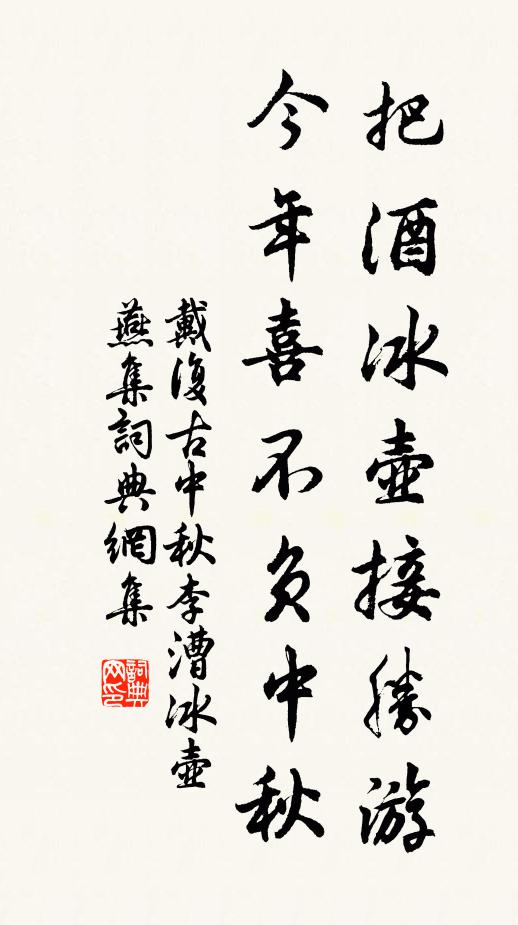 把酒冰壺接勝游
今年喜不負中秋
戴復古中秋李漕冰壺
燕集詞典網集
詞典网印